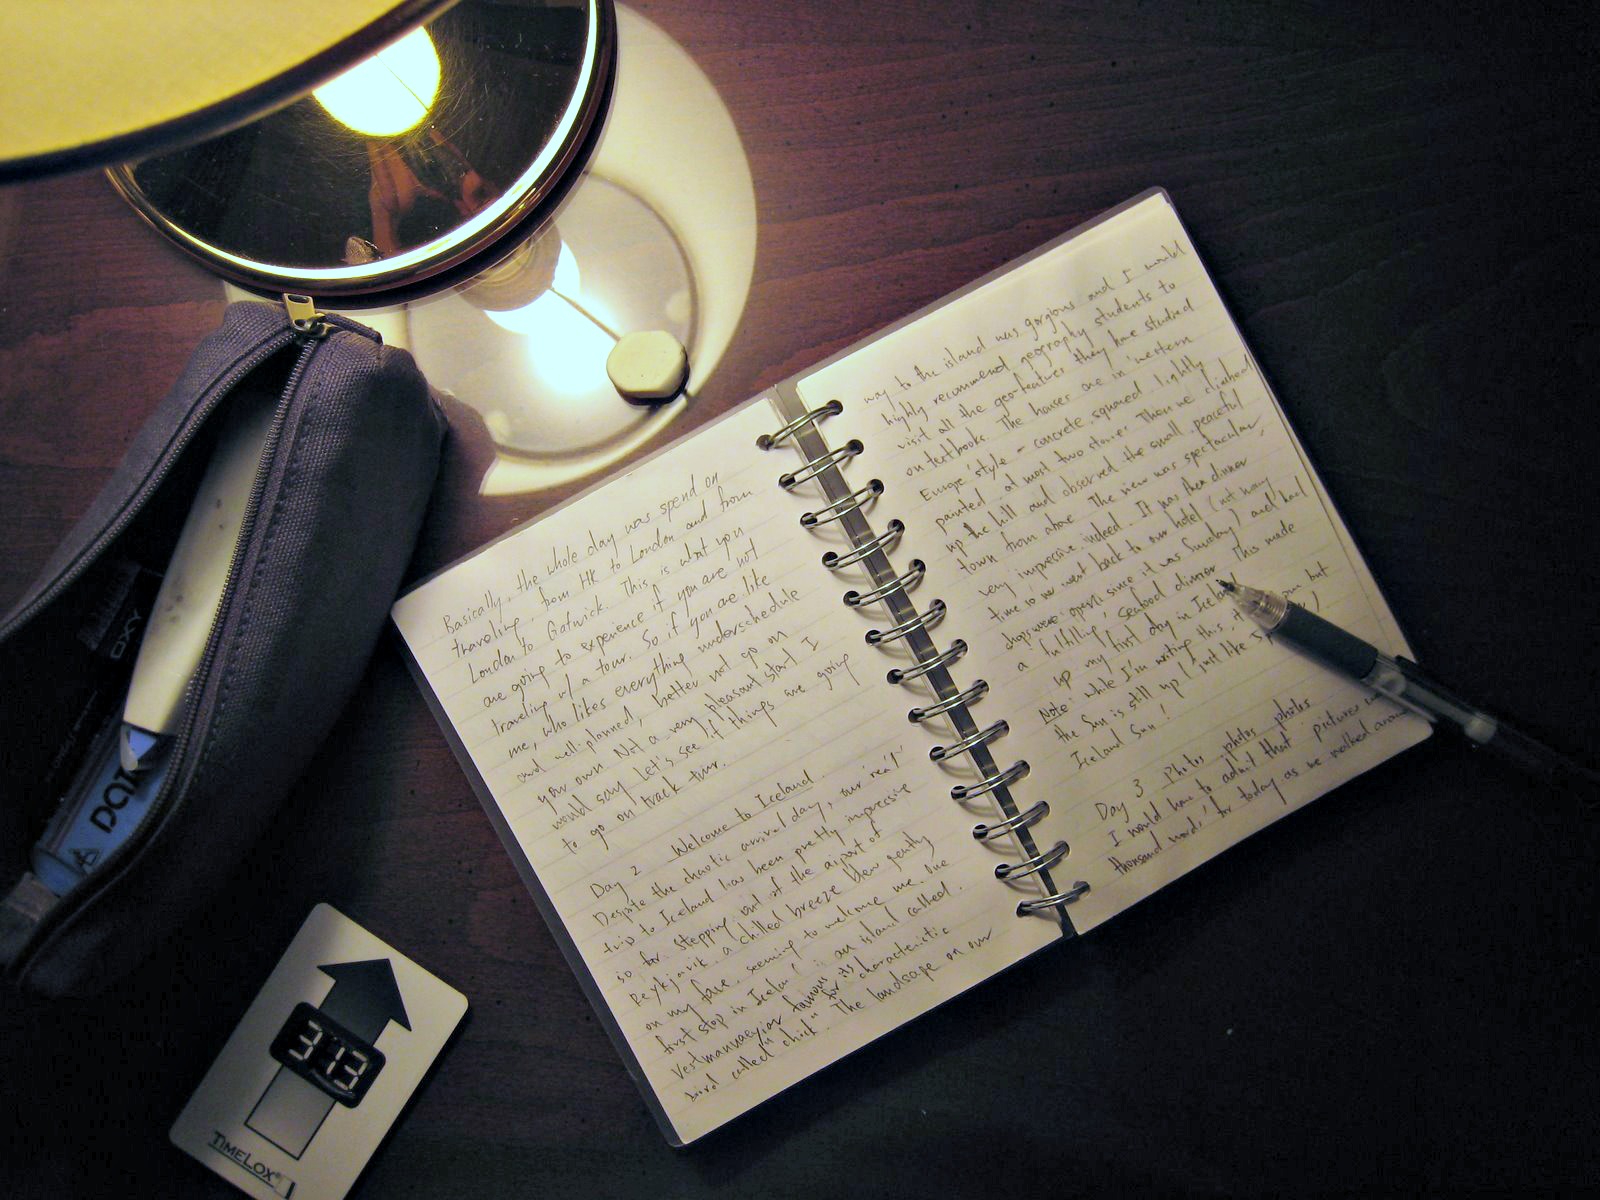 Basically, the whole day was spend on
traveling, from HK to London and from
London to Gatwick. This is what you
are going to experience if you are not
traveling w/ a tour. So if you are like
me, who likes everything underschedule
and well-planned, better not go on
your own. Not a very pleasant start I
would say. Let's see if things are going
to go on track tmr.
Day 2 Welcome to Iceland.
Despite the chaotic arrival day, our 'real'
trip to Iceland has been pretty impressive
so far. Stepping out of the airport of
Reykjavik, a chilled breeze blew gently
on my face, seeming to welcome me. One
first stop in Iceland is an island called
Vestmannaeyjar famous for its characteristic
bird called "chick". The landscape on our
way to the island was gorgious and I would
highly recommend geography students to
visit all the geo-features they have studied
on textbooks. The houses are in 'western
Europe' style - concrete, squared, lightly
painted, at most two stories. Then we climbed
up the hill and observed the small, peaceful
town from above. The view was spectacular,
very impressive indeed. It was then dinner
time so we went back to our hotel (not many
shops were opened since it was Sunday) and had
a fulfilling seafood dinner. This made
up my first day in Iceland
Note: while I'm writing this, it but
the Sun is still up! (just like I )
Iceland Sun!
Day 3 Photos photos photos
I would have to admit that 'pictures
thousand words' for today as we walked around
DATA
OXY
313
TIMELOX